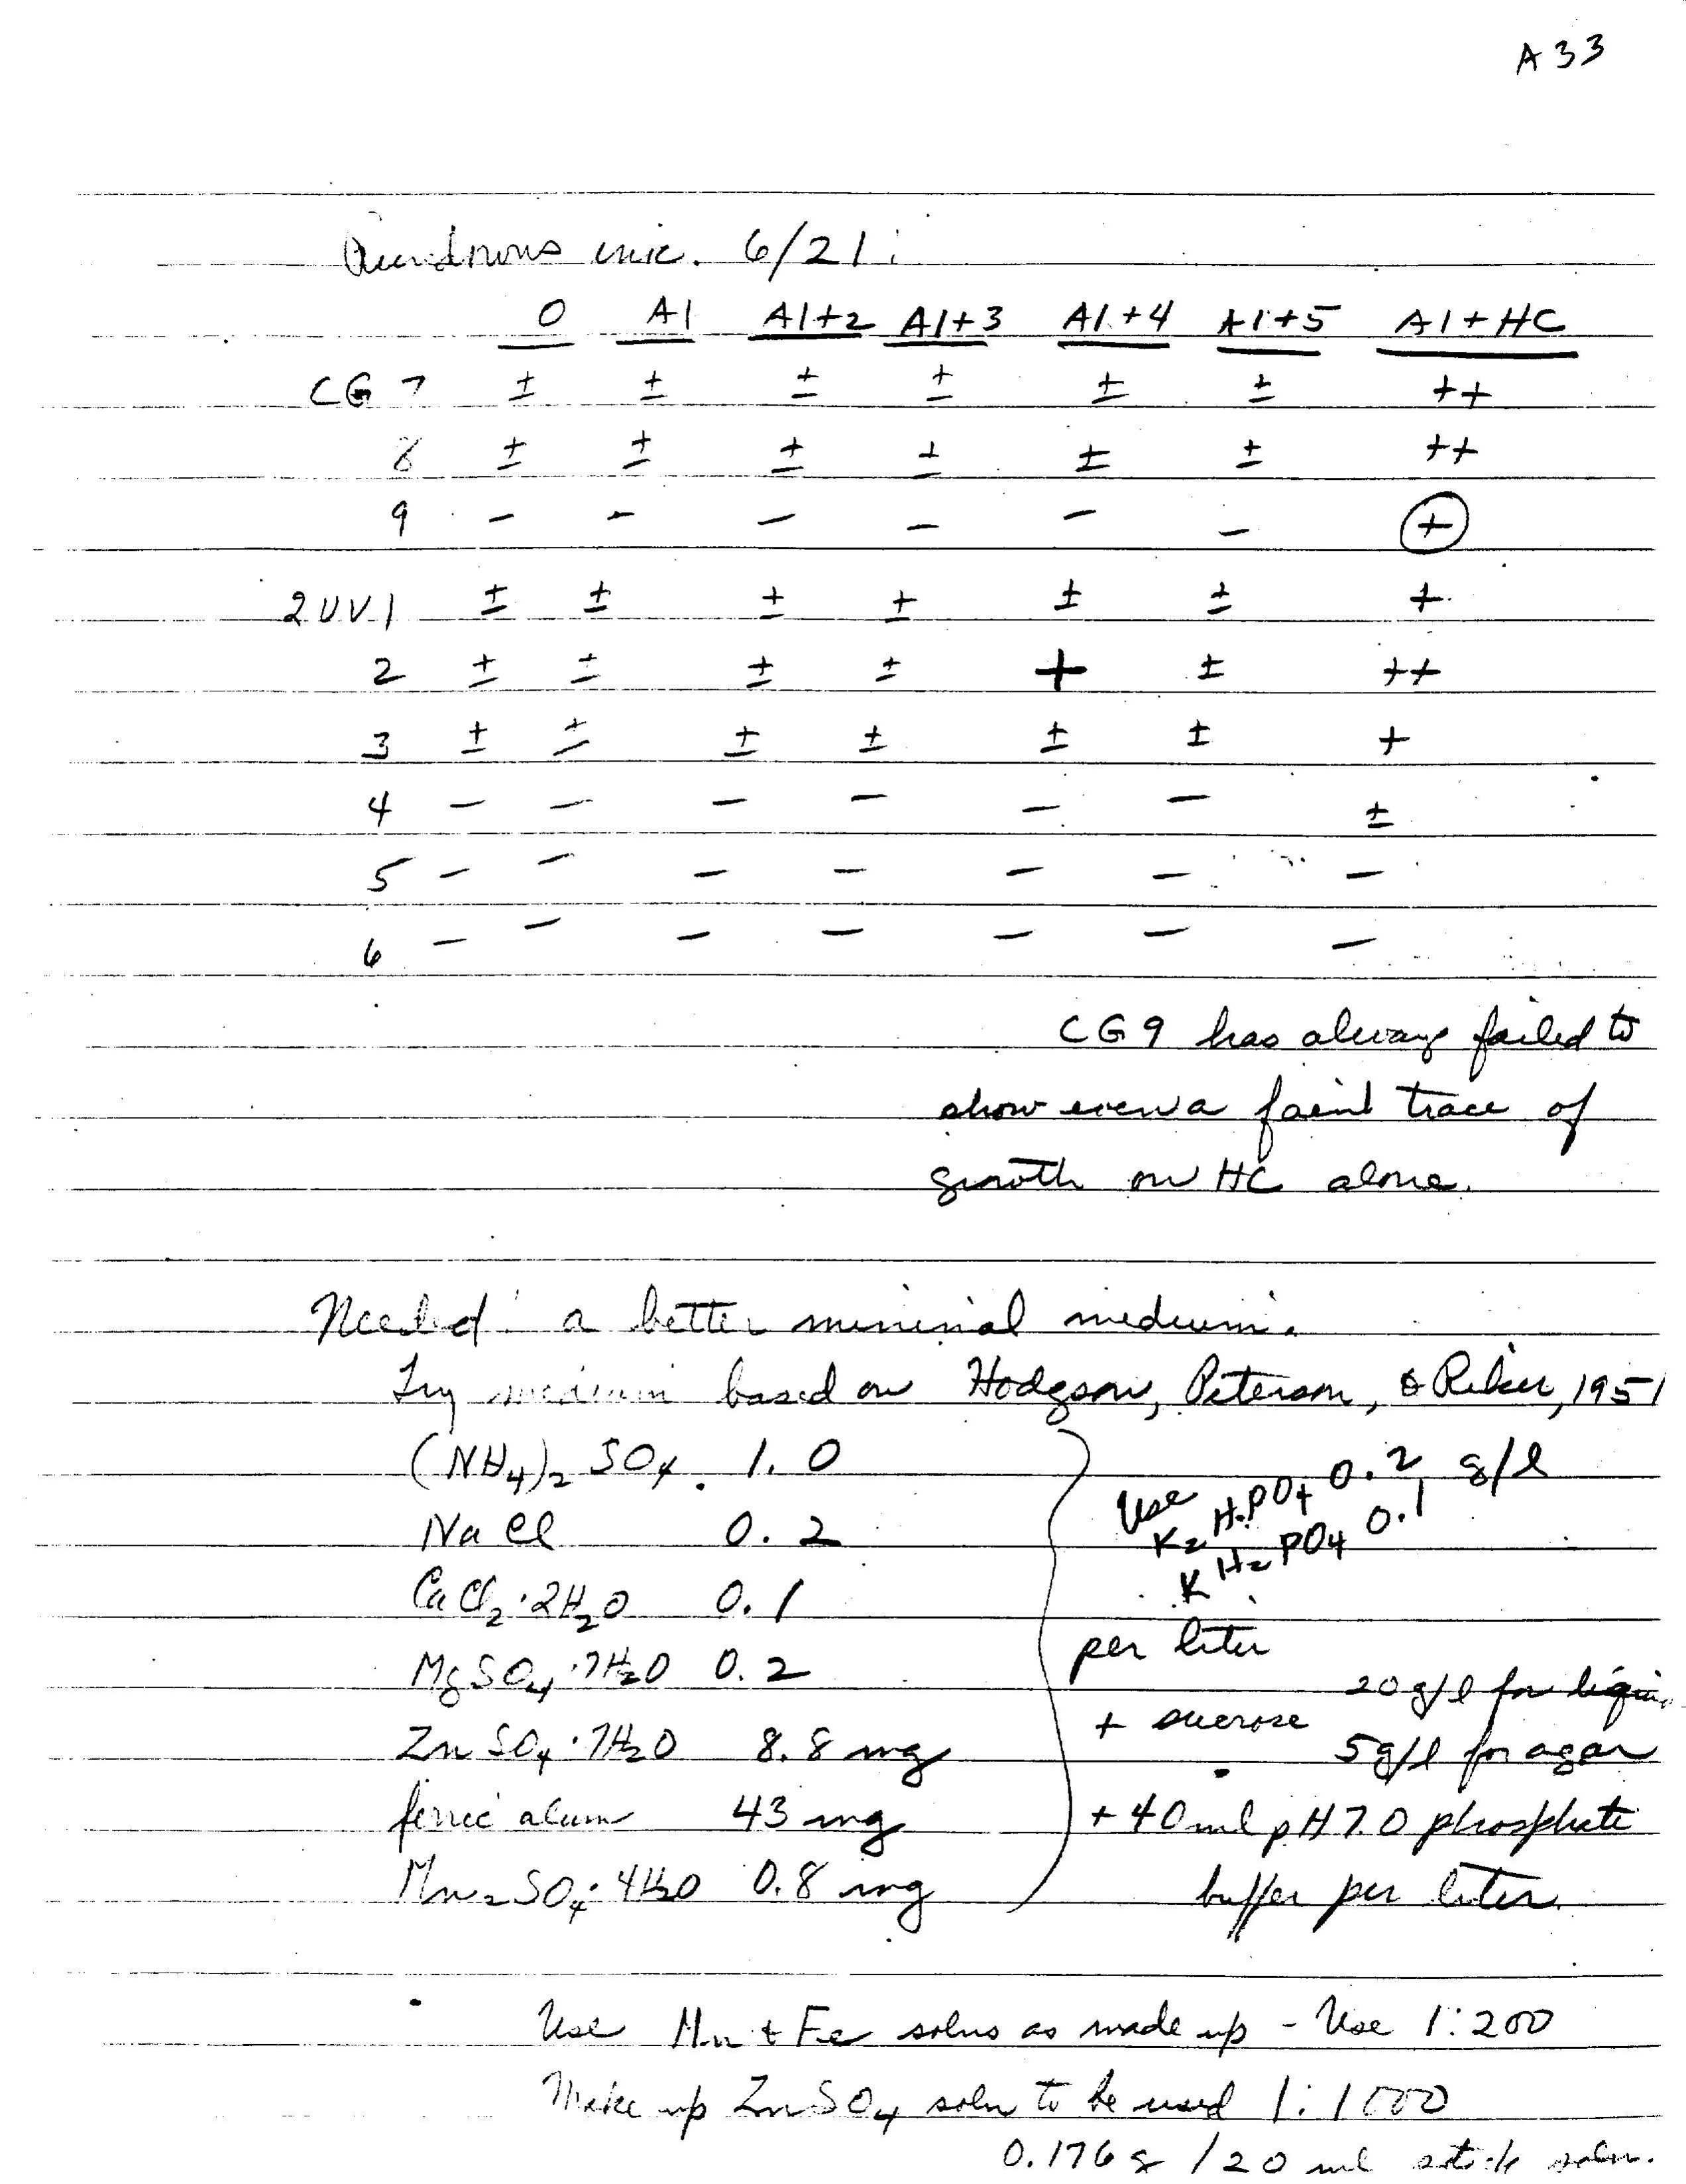 A33
inc. 6/21:
0 A1 A1+2 A1+3 A1+4 A1+5 A1+HC
CG 7 ± ± ± ± ± ± ++
8 ± ± ± ± ± ± ++
9 - - - - - - +
2UV1 ± ± ± ± ± ± +
2 ± ± ± ± + ± ++
3 ± ± ± ± ± ± +
4 - - - - - - ±
5 - - - - - - -
6 - - - - - - -
CG9 has always failed to
show even a faint trace of
growth on HC alone.
Needed: a better minimal medium.
Try medium based on Hodgson, Peterson, & Riker, 1951
(NH4)2 SO4. 1.0
NaCl 0.2
CaCl2·2H2O 0.1
MgSO4·7H2O 0.2
ZnSO4·7H2O 8.8 mg
ferric alum 43 mg
Mn2SO4·4H2O 0.8 mg
Use K2HPO4 0.2 g/l
KH2PO4 0.1
per liter
+ sucrose 20 g/l for liquid
5 g/l for agar
+ 40 ml pH 7.0 phosphate
buffer per liter.
Use Mn & Fe solns as made up - Use 1:200
Make up ZnSO4 soln to be used 1:1000
0.176 g / 20 ml stock soln.